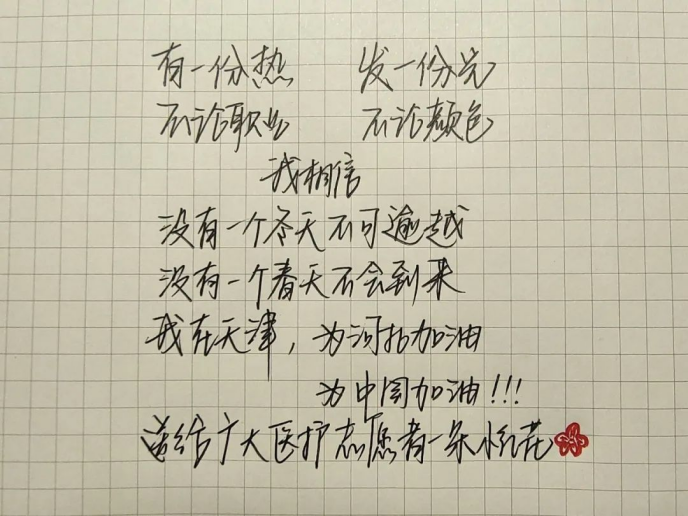 有一份热 发一份光
不论职业 不论颜色
我相信
没有一个冬天不可逾越
没有一个春天不会到来
我在天津，为河北加油
为中国加油!!!
送给广大医护志愿者一朵小红花